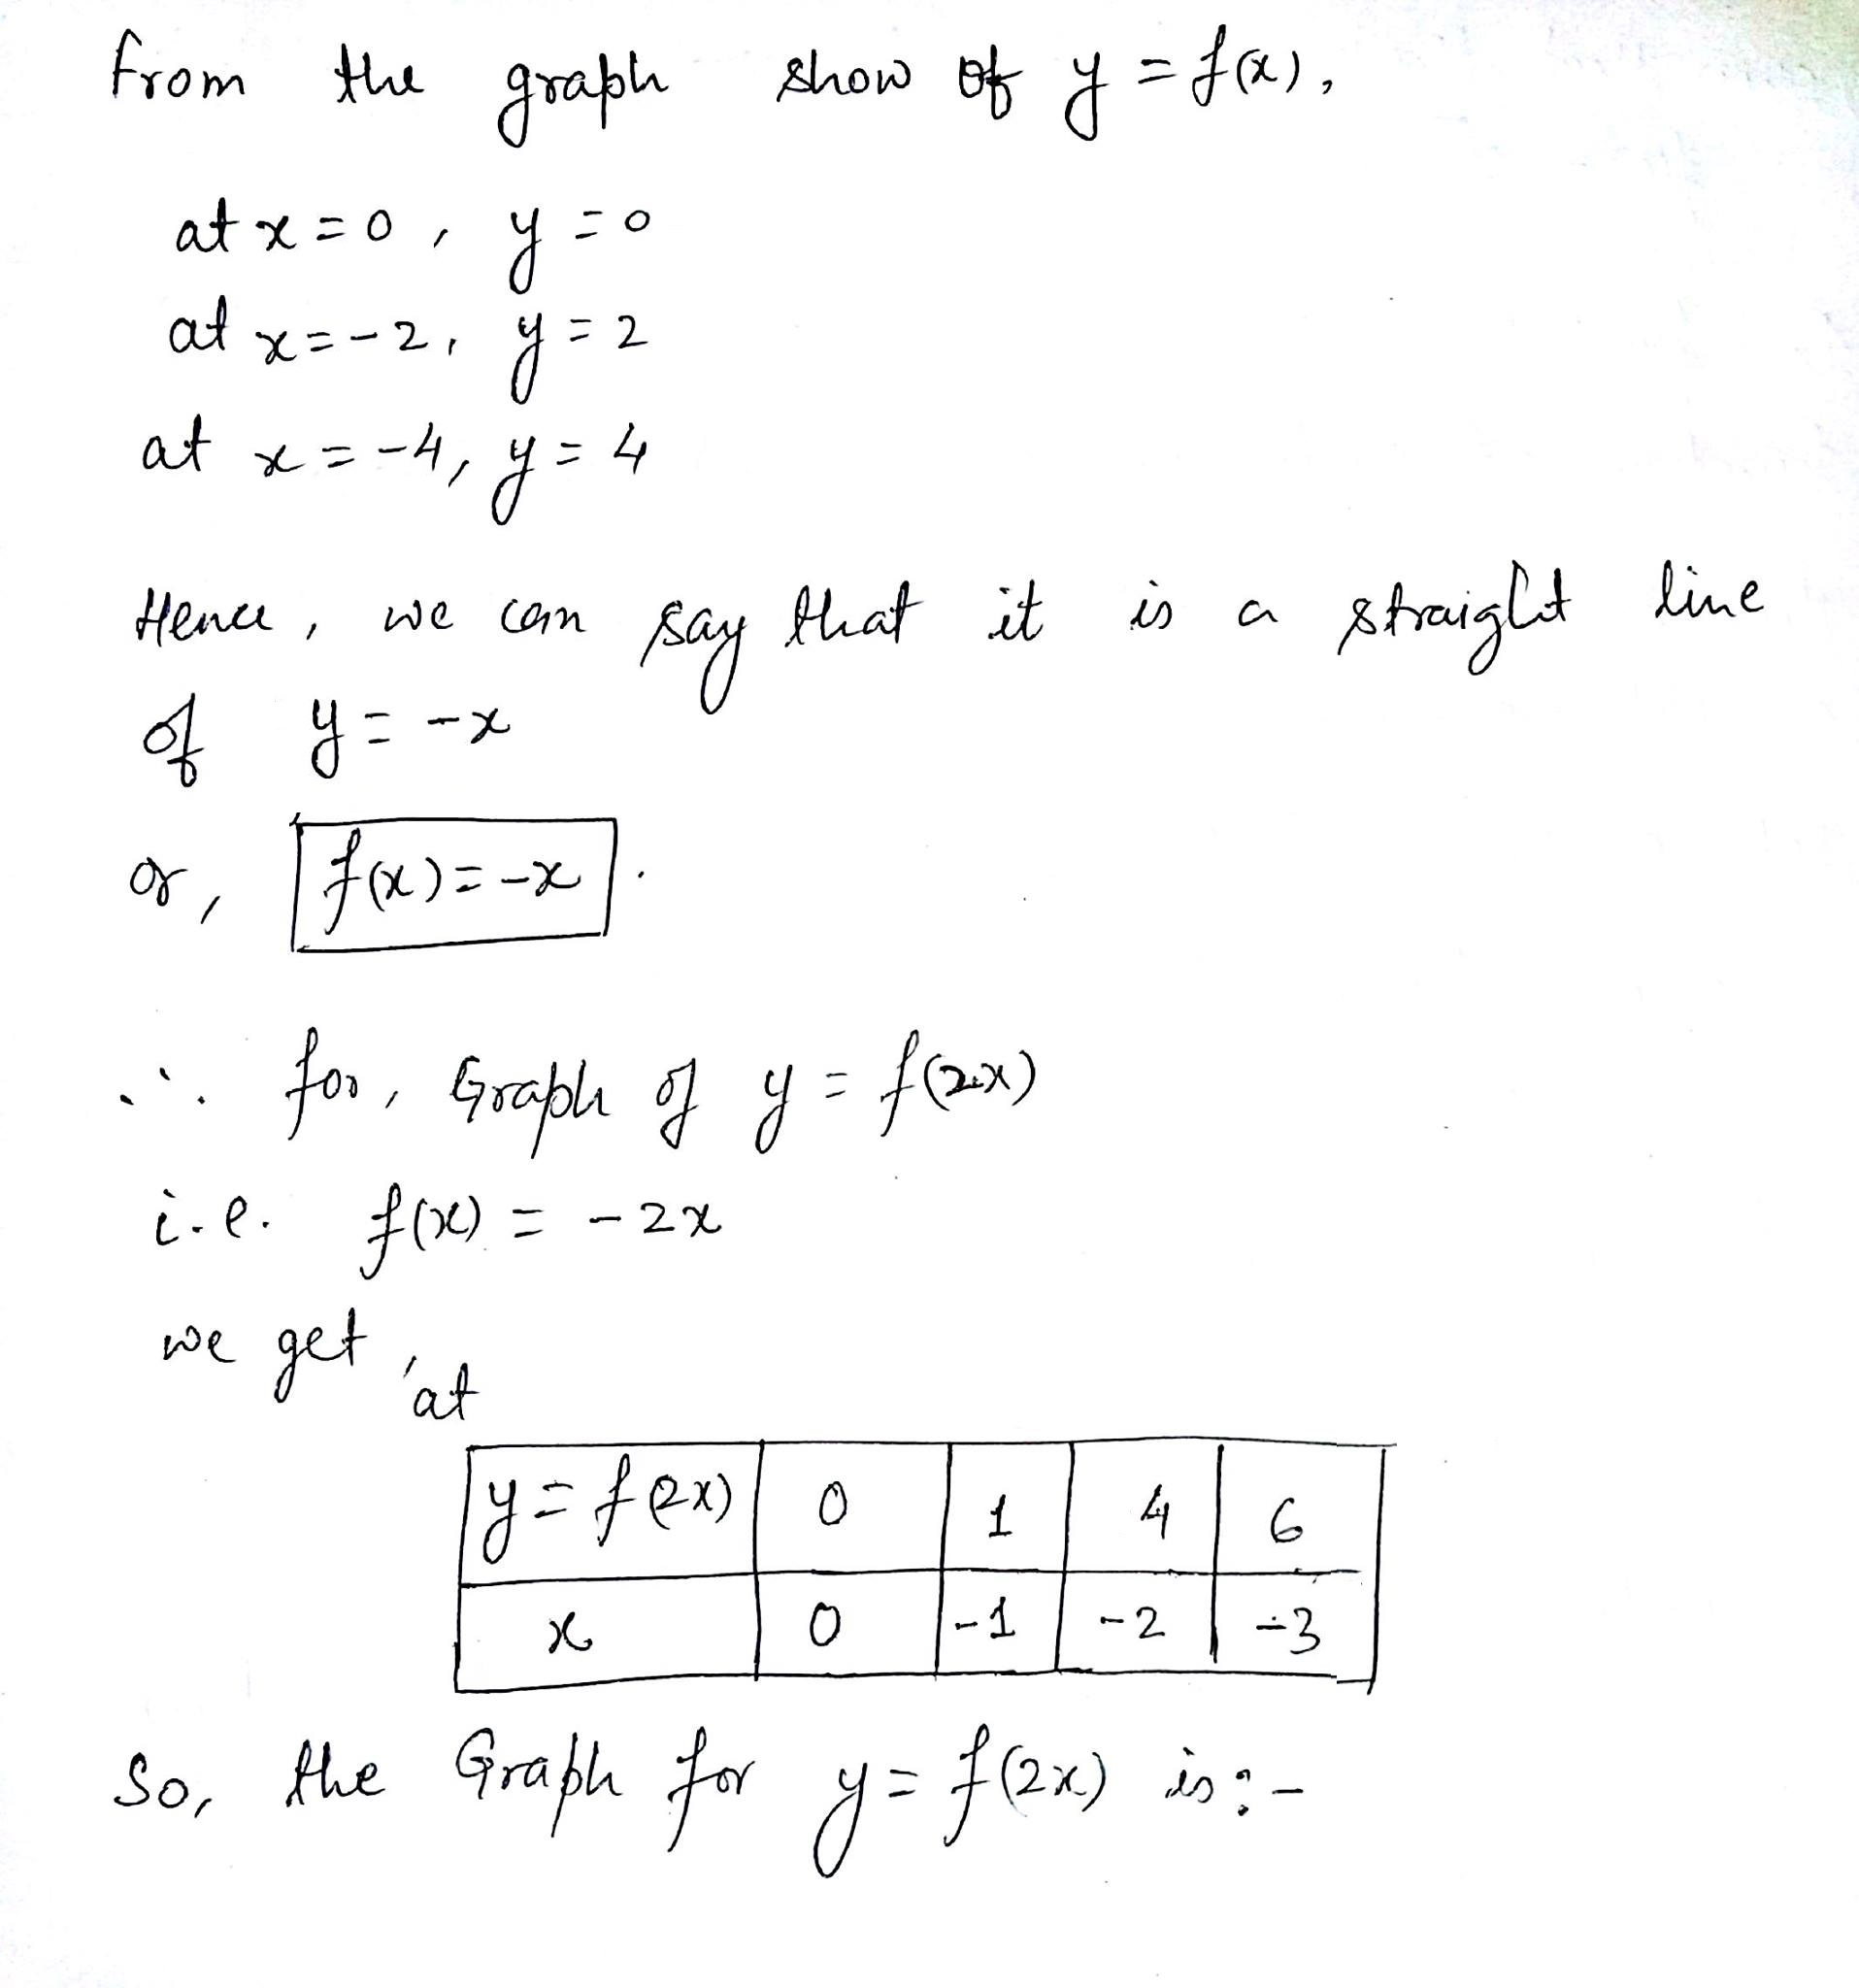 from the graph show of y = f(x),
at x = 0, y = 0
at x = -2, y = 2
at x = -4, y = 4
Hence, we can say that it is a straight line
of y = -x
or, f(x) = -x .
∴ for, Graph of y = f(2x)
i.e. f(x) = -2x
we get, at
y = f(2x) 0 1 4 6
x 0 -1 -2 -3
So, the Graph for y = f(2x) is :-